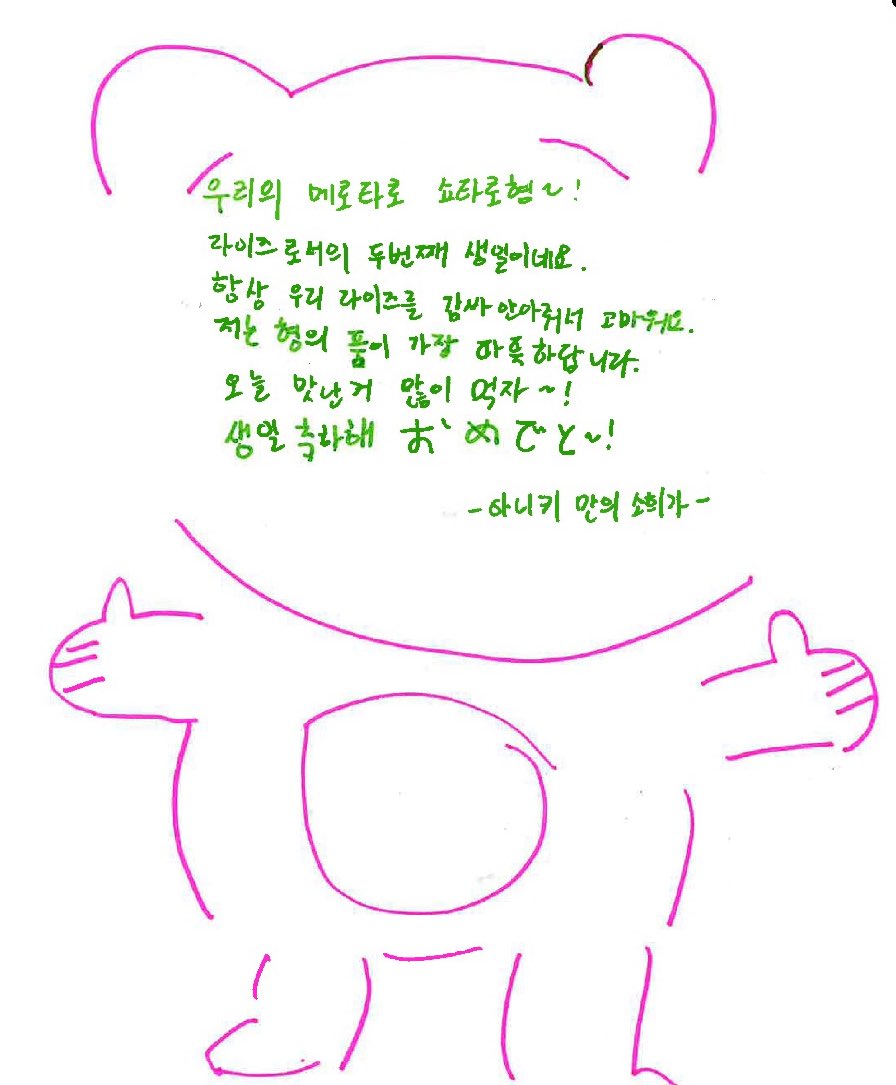 우리의 메로타로 쇼타로형~!
라이즈로서의 두번째 생일이네요.
항상 우리 라이즈를 감싸안아줘서 고마워요.
저는 형의 품이 가장 따뜻하답니다.
오늘 맛난거 많이 먹자~!
생일축하해 おめでと~!
-아니키만의 소희가-